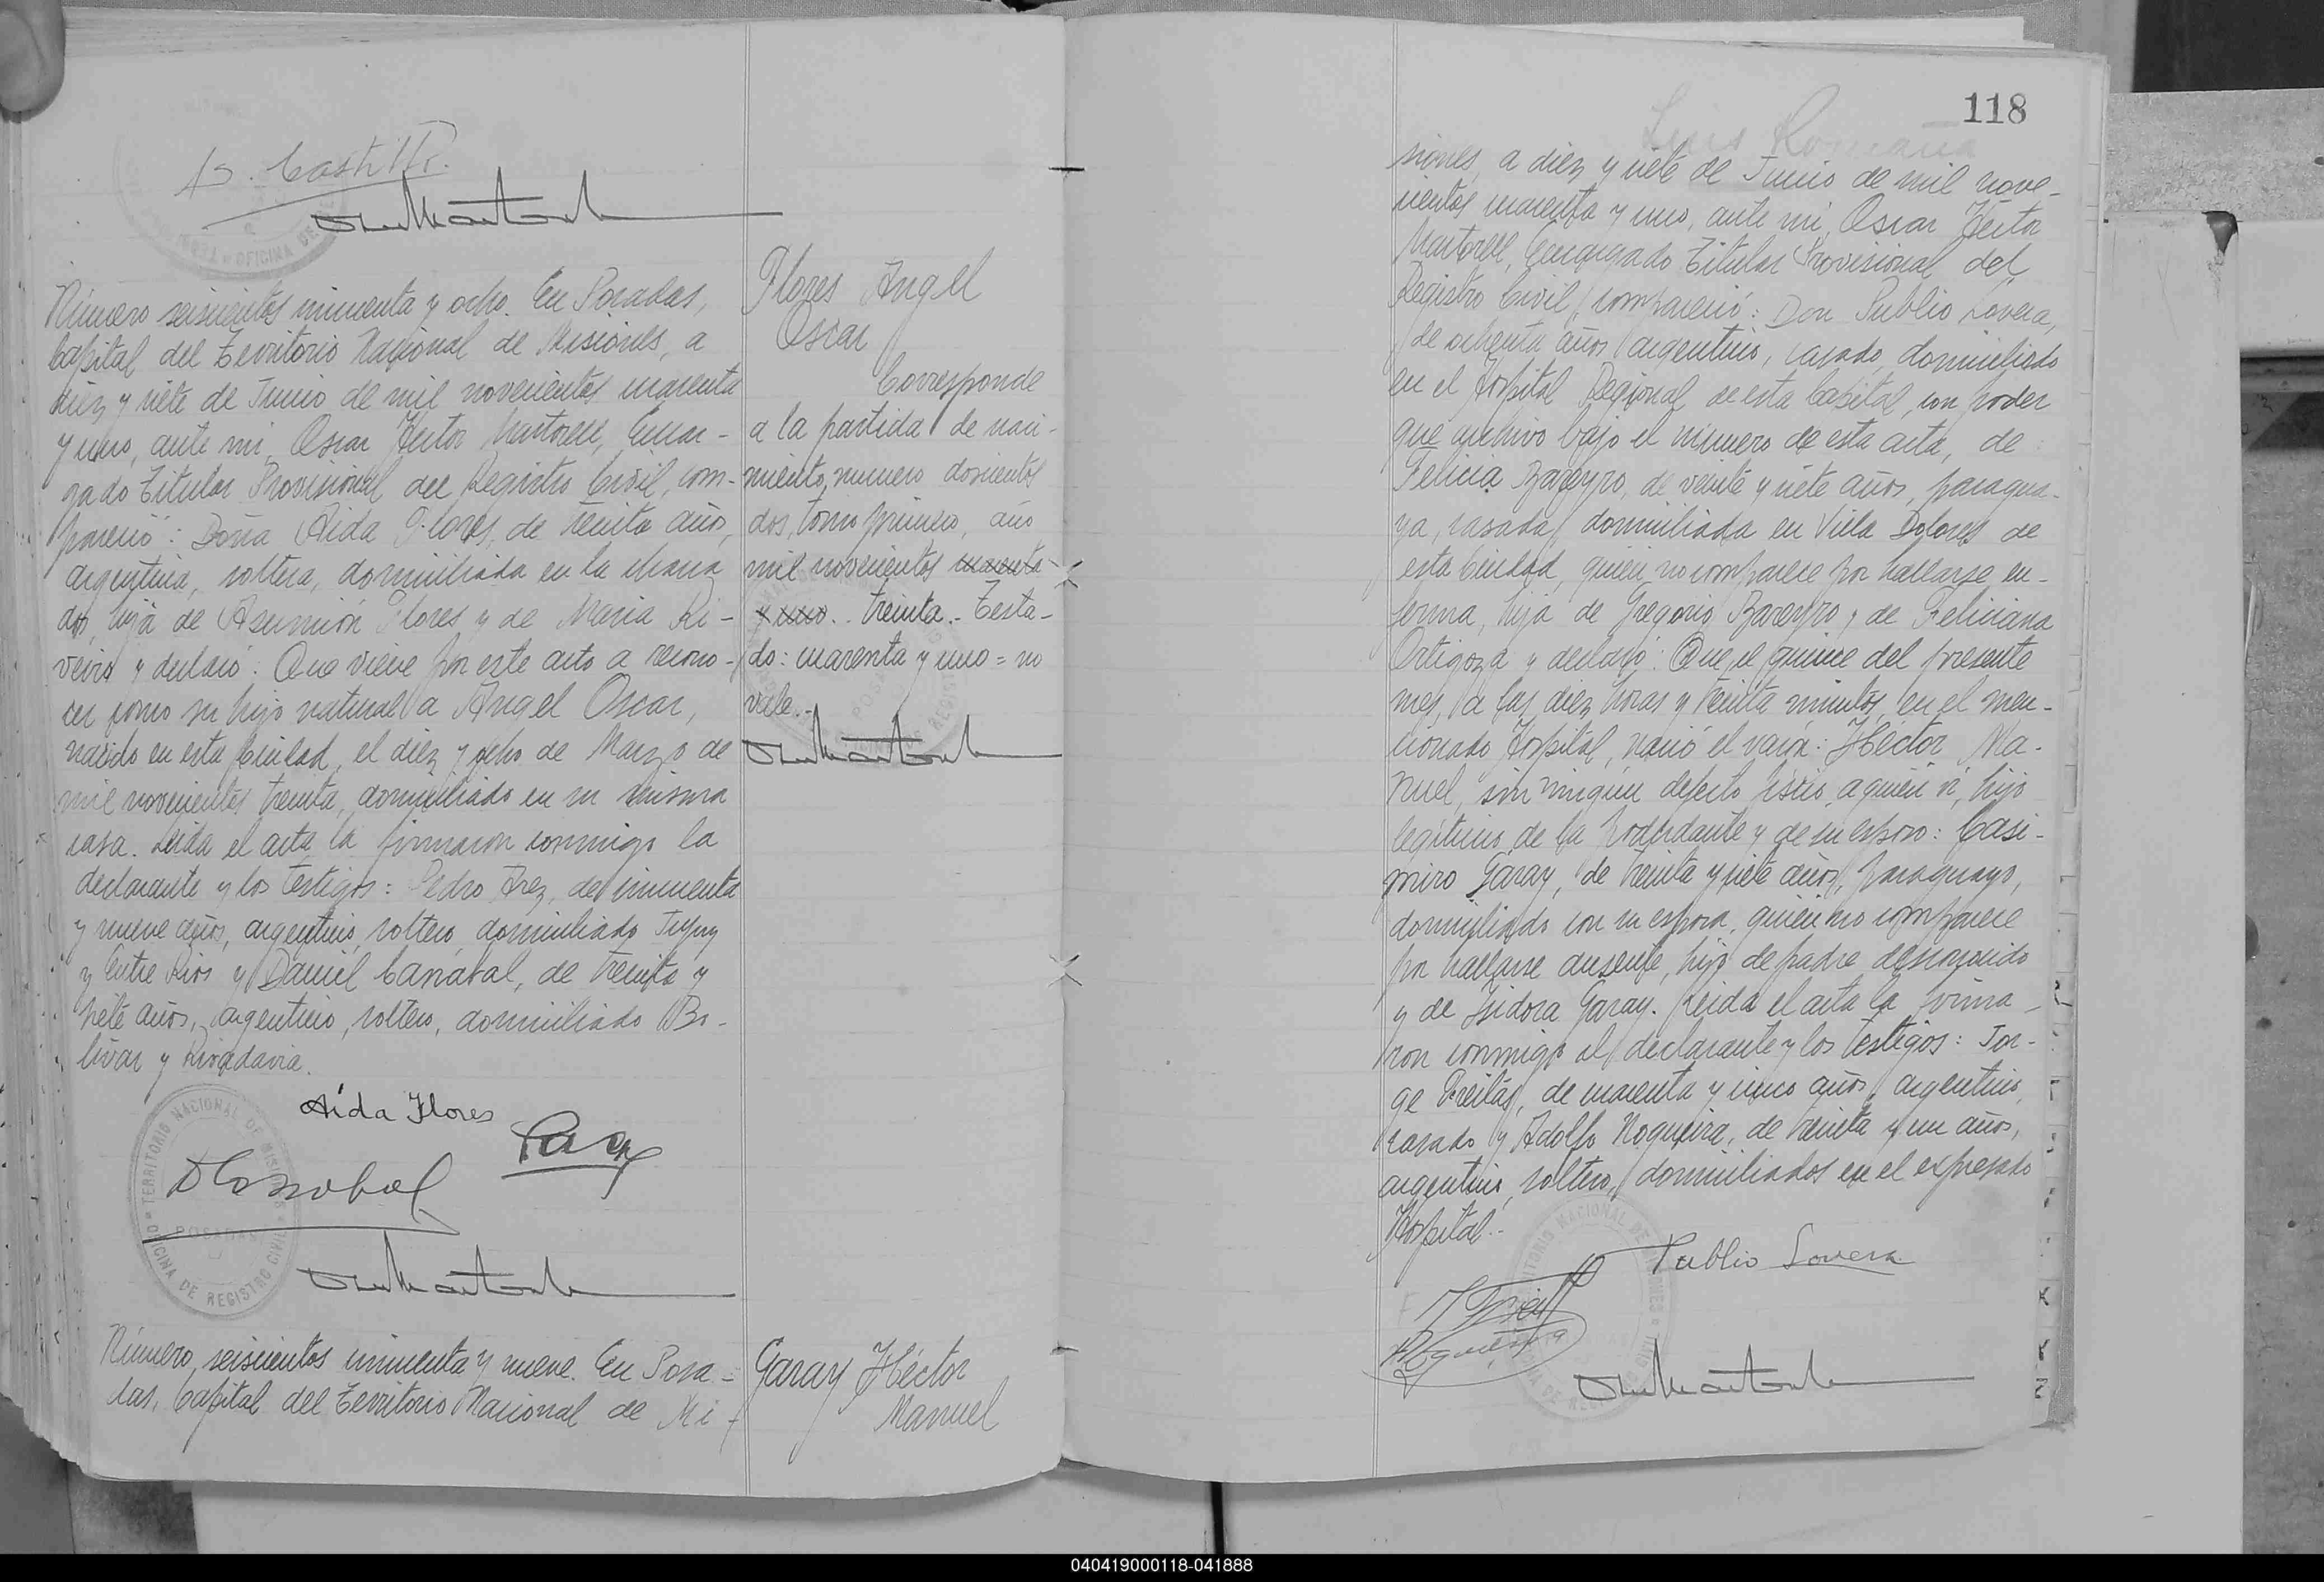 B. Castillo
Número seiscientos cincuenta y ocho. En Posadas,
Capital del Territorio Nacional de Misiones, a
diez y siete de Junio de mil novecientos cuarenta
y uno, ante mi, Oscar Hector Martorell, Encar-
gado Titular Provisional del Registro Civil, com-
pareció: Doña Aida Flores, de treinta años,
argentina, soltera, domiciliada en la chacra
dos, hija de Asunción Flores y de Maria Ri-
veiro y declaró: Que viene por este acto a recono-
cer como su hijo natural a Angel Oscar,
nacido en esta Ciudad, el diez y ocho de Marzo de
mil novecientos treinta, domiciliado en su misma
casa. Leida el acta la firmaron conmigo la
declarante y los testigos: Pedro Arez, de cincuenta
y nueve años, argentino, soltero, domiciliado Jujuy
y Entre Rios y Daniel Canabal, de treinta y
siete años, argentino, soltero, domiciliado Bo-
livar y Rivadavia.
Aida Flores
DCanabal
TERRITORIO NACIONAL DE MISIONES
POSADAS
OFICINA DE REGISTRO CIVIL
Flores Angel
Oscar
Corresponde
a la partida de naci-
miento, numero doscientos
dos, tomo primero, año
mil novecientos cuarenta
y uno.. treinta.- Testa-
do: cuarenta y uno = no
vale.-
Número, seiscientos cincuenta y nueve. En Posa-
das, Capital del Territorio Nacional de Mi-
Garay Héctor
Manuel
118
Luis Romaña
siones, a diez y siete de Junio de mil nove-
cientos cuarenta y uno, ante mi, Oscar Hector
Martorell, Encargado Titular Provisional del
Registro Civil, compareció: Don Publio Lovera,
de ochenta años, argentino, casado, domiciliado
en el Hospital Regional de esta Capital, con poder
que archivo bajo el número de esta acta, de
Felicia Bareyro, de veinte y siete años, paragua-
ya, casada, domiciliada en Villa Dolores de
esta Ciudad, quien no comparece por hallarse en-
ferma, hija de Gregorio Bareyro y de Feliciana
Ortigoza y declaró: Que el quince del presente
mes, a las diez horas y treinta minutos, en el men-
cionado Hospital, nació el varón: Héctor Ma-
nuel, sin ningún defecto fisico, a quien vi, hijo
legitimo de la poderdante y de su esposo: Casi-
miro Garay, de treinta y siete años, paraguayo,
domiciliado con su esposa, quien no comparece
por hallarse ausente, hijo de padre desconocido
y de Isidora Garay. Leida el acta la firma-
ron conmigo el declarante y los testigos: Jor-
ge Freitas, de cuarenta y cinco años, argentino,
casado y Adolfo Nogueira, de treinta y un años,
argentino, soltero, domiciliados en el expresado
Hospital.-
Publio Lovera